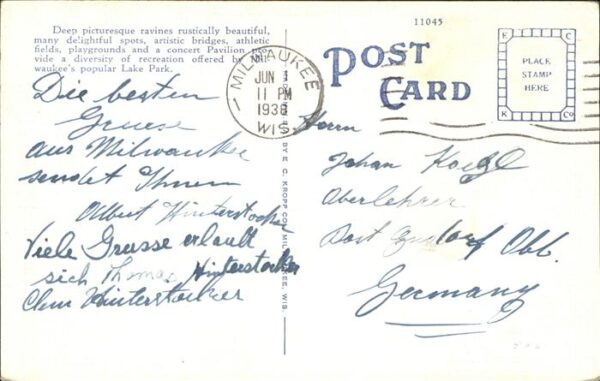 Deep picturesque ravines rustically beautiful,
many delightful spots, artistic bridges, athletic
fields, playgrounds and a concert Pavilion pro-
vide a diversity of recreation offered by Mil-
waukee's popular Lake Park.
11045
POST
CARD
PLACE
STAMP
HERE
E C
K Co
MILWAUKEE
JUN
11 PM
1938
WIS.
BY E. C. KROPP CO., MILWAUKEE, WIS.
Die besten
Gruesse
aus Milwaukee
sendet Ihnen
Albert Hinterstocker
Viele Grusse erlaubt
sich Thomas Hinterstocker
Clem Hinterstocker
Herrn
Johan
Oberlehrer
Post Obb.
Germany